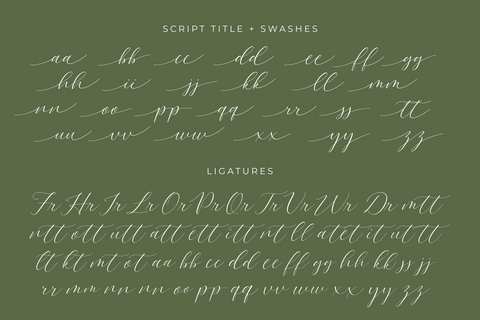 SCRIPT TITLE + SWASHES
aa bb cc dd ee ff gg
hh ii jj kk ll mm
nn oo pp qq rr ss tt
uu vv ww xx yy zz
LIGATURES
Fr Hr Ir Lr Or Pr Qr Tr Vr Wr Dr mtt
ntt ott utt att ett itt nt ll at et it ut tt
lt kt mt ot aa bb cc dd ee ff gg hh kk ss jj
rr mm nn nn oo pp qq vv uu ww xx yy zz